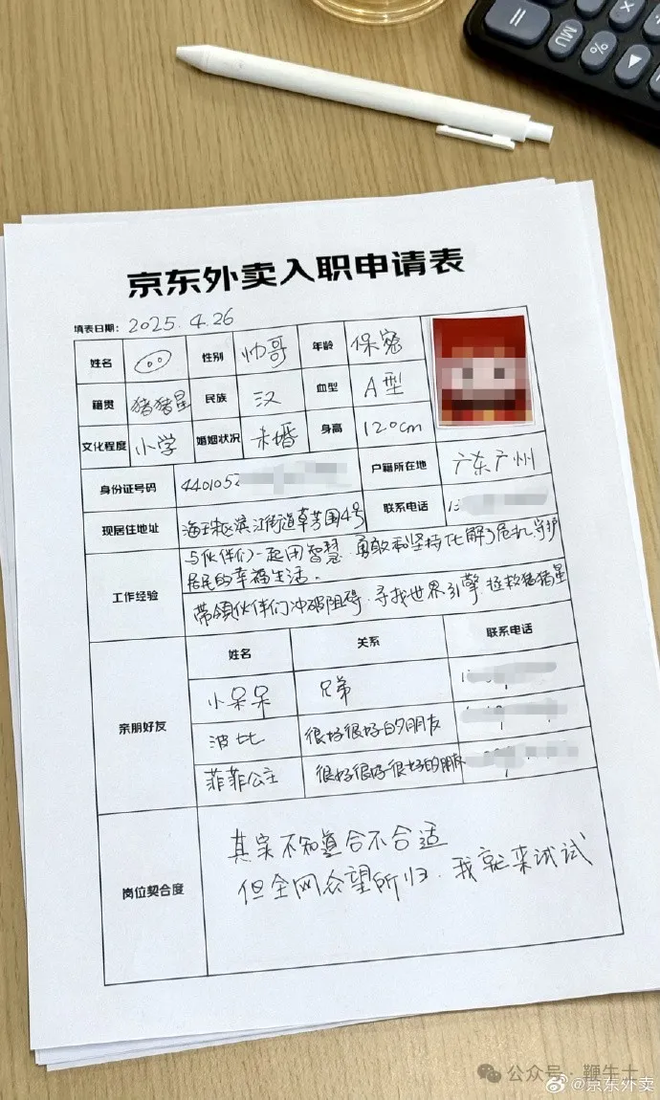 京东外卖入职申请表
填表日期：2025.4.26
姓名 性别 帅哥 年龄 保密
籍贯 猪猪星 民族 汉 血型 A型
文化程度 小学 婚姻状况 未婚 身高 120cm
身份证号码 4401052 户籍所在地 广东广州
现居住地址 海珠区滨江街道草芳围4号 联系电话 1
工作经验
与伙伴们一起用智慧、勇敢和坚持化解了危机，守护
居民的幸福生活。
带领伙伴们冲破阻碍，寻找世界引擎，拯救猪猪星
亲朋好友
姓名 关系 联系电话
小呆呆 兄弟
波比 很好很好的朋友
菲菲公主 很好很好很好的朋
岗位契合度
其实不知道合不合适
但全网众望所归，我就来试试
= MU % ▶
公众号·鞭牛士
@京东外卖